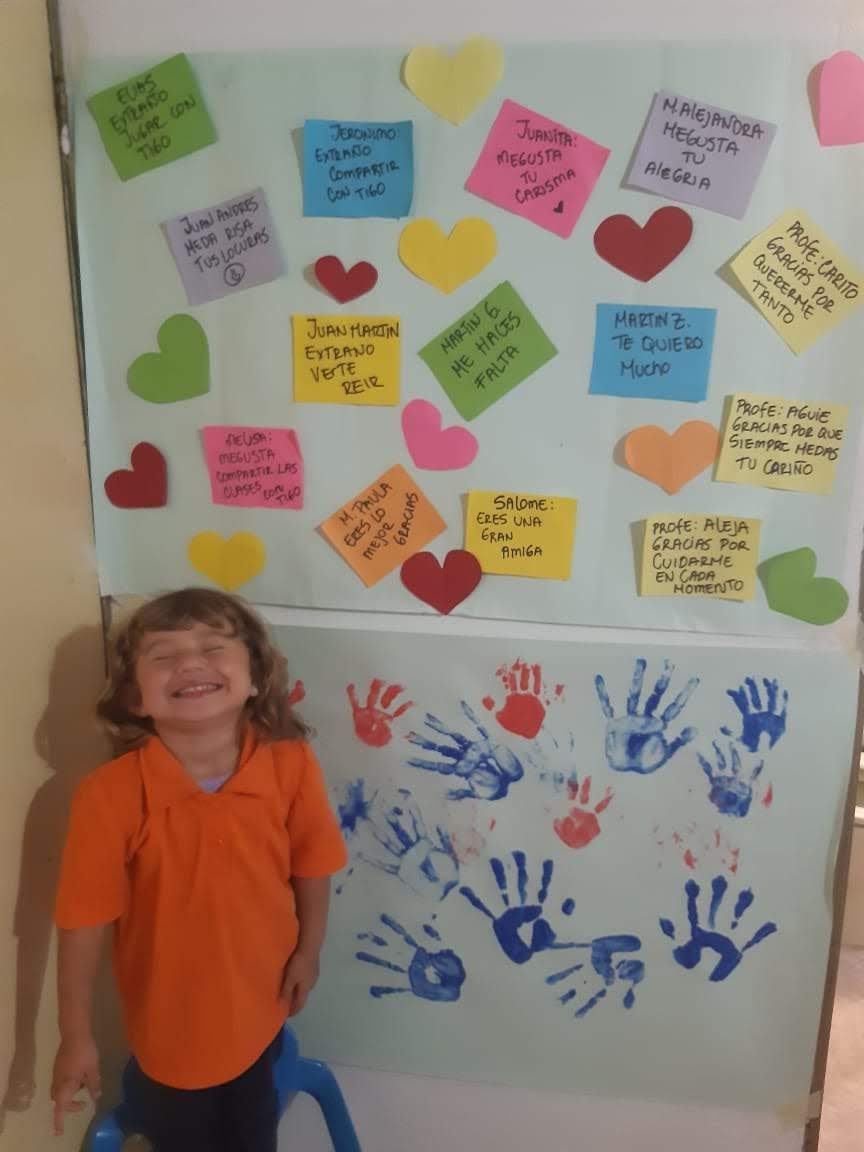 ELIAS
EXTRAÑO
JUGAR CON
TIGO
JERONIMO:
EXTRAÑO
COMPARTIR
CON TIGO
JUANITA:
MEGUSTA
TU
CARISMA
M.ALEJANDRA
MEGUSTA
TU
ALEGRIA
JUAN ANDRES
MEDA RISA
TUS LOCURAS
PROFE: CARITO
GRACIAS POR
QUERERME
TANTO
JUAN MARTIN
EXTRAÑO
VERTE
REIR
MARTIN G.
ME HACES
FALTA
MARTIN Z.
TE QUIERO
MUCHO
PROFE: AGUIE
GRACIAS POR QUE
SIEMPRE MEDAS
TU CARIÑO
MEGUSTA
COMPARTIR LAS
CLASES CON TIGO
M. PAULA
ERES LO
MEJOR
GRACIAS
SALOME:
ERES UNA
GRAN
AMIGA
PROFE: ALEJA
GRACIAS POR
CUIDARME
EN CADA
MOMENTO